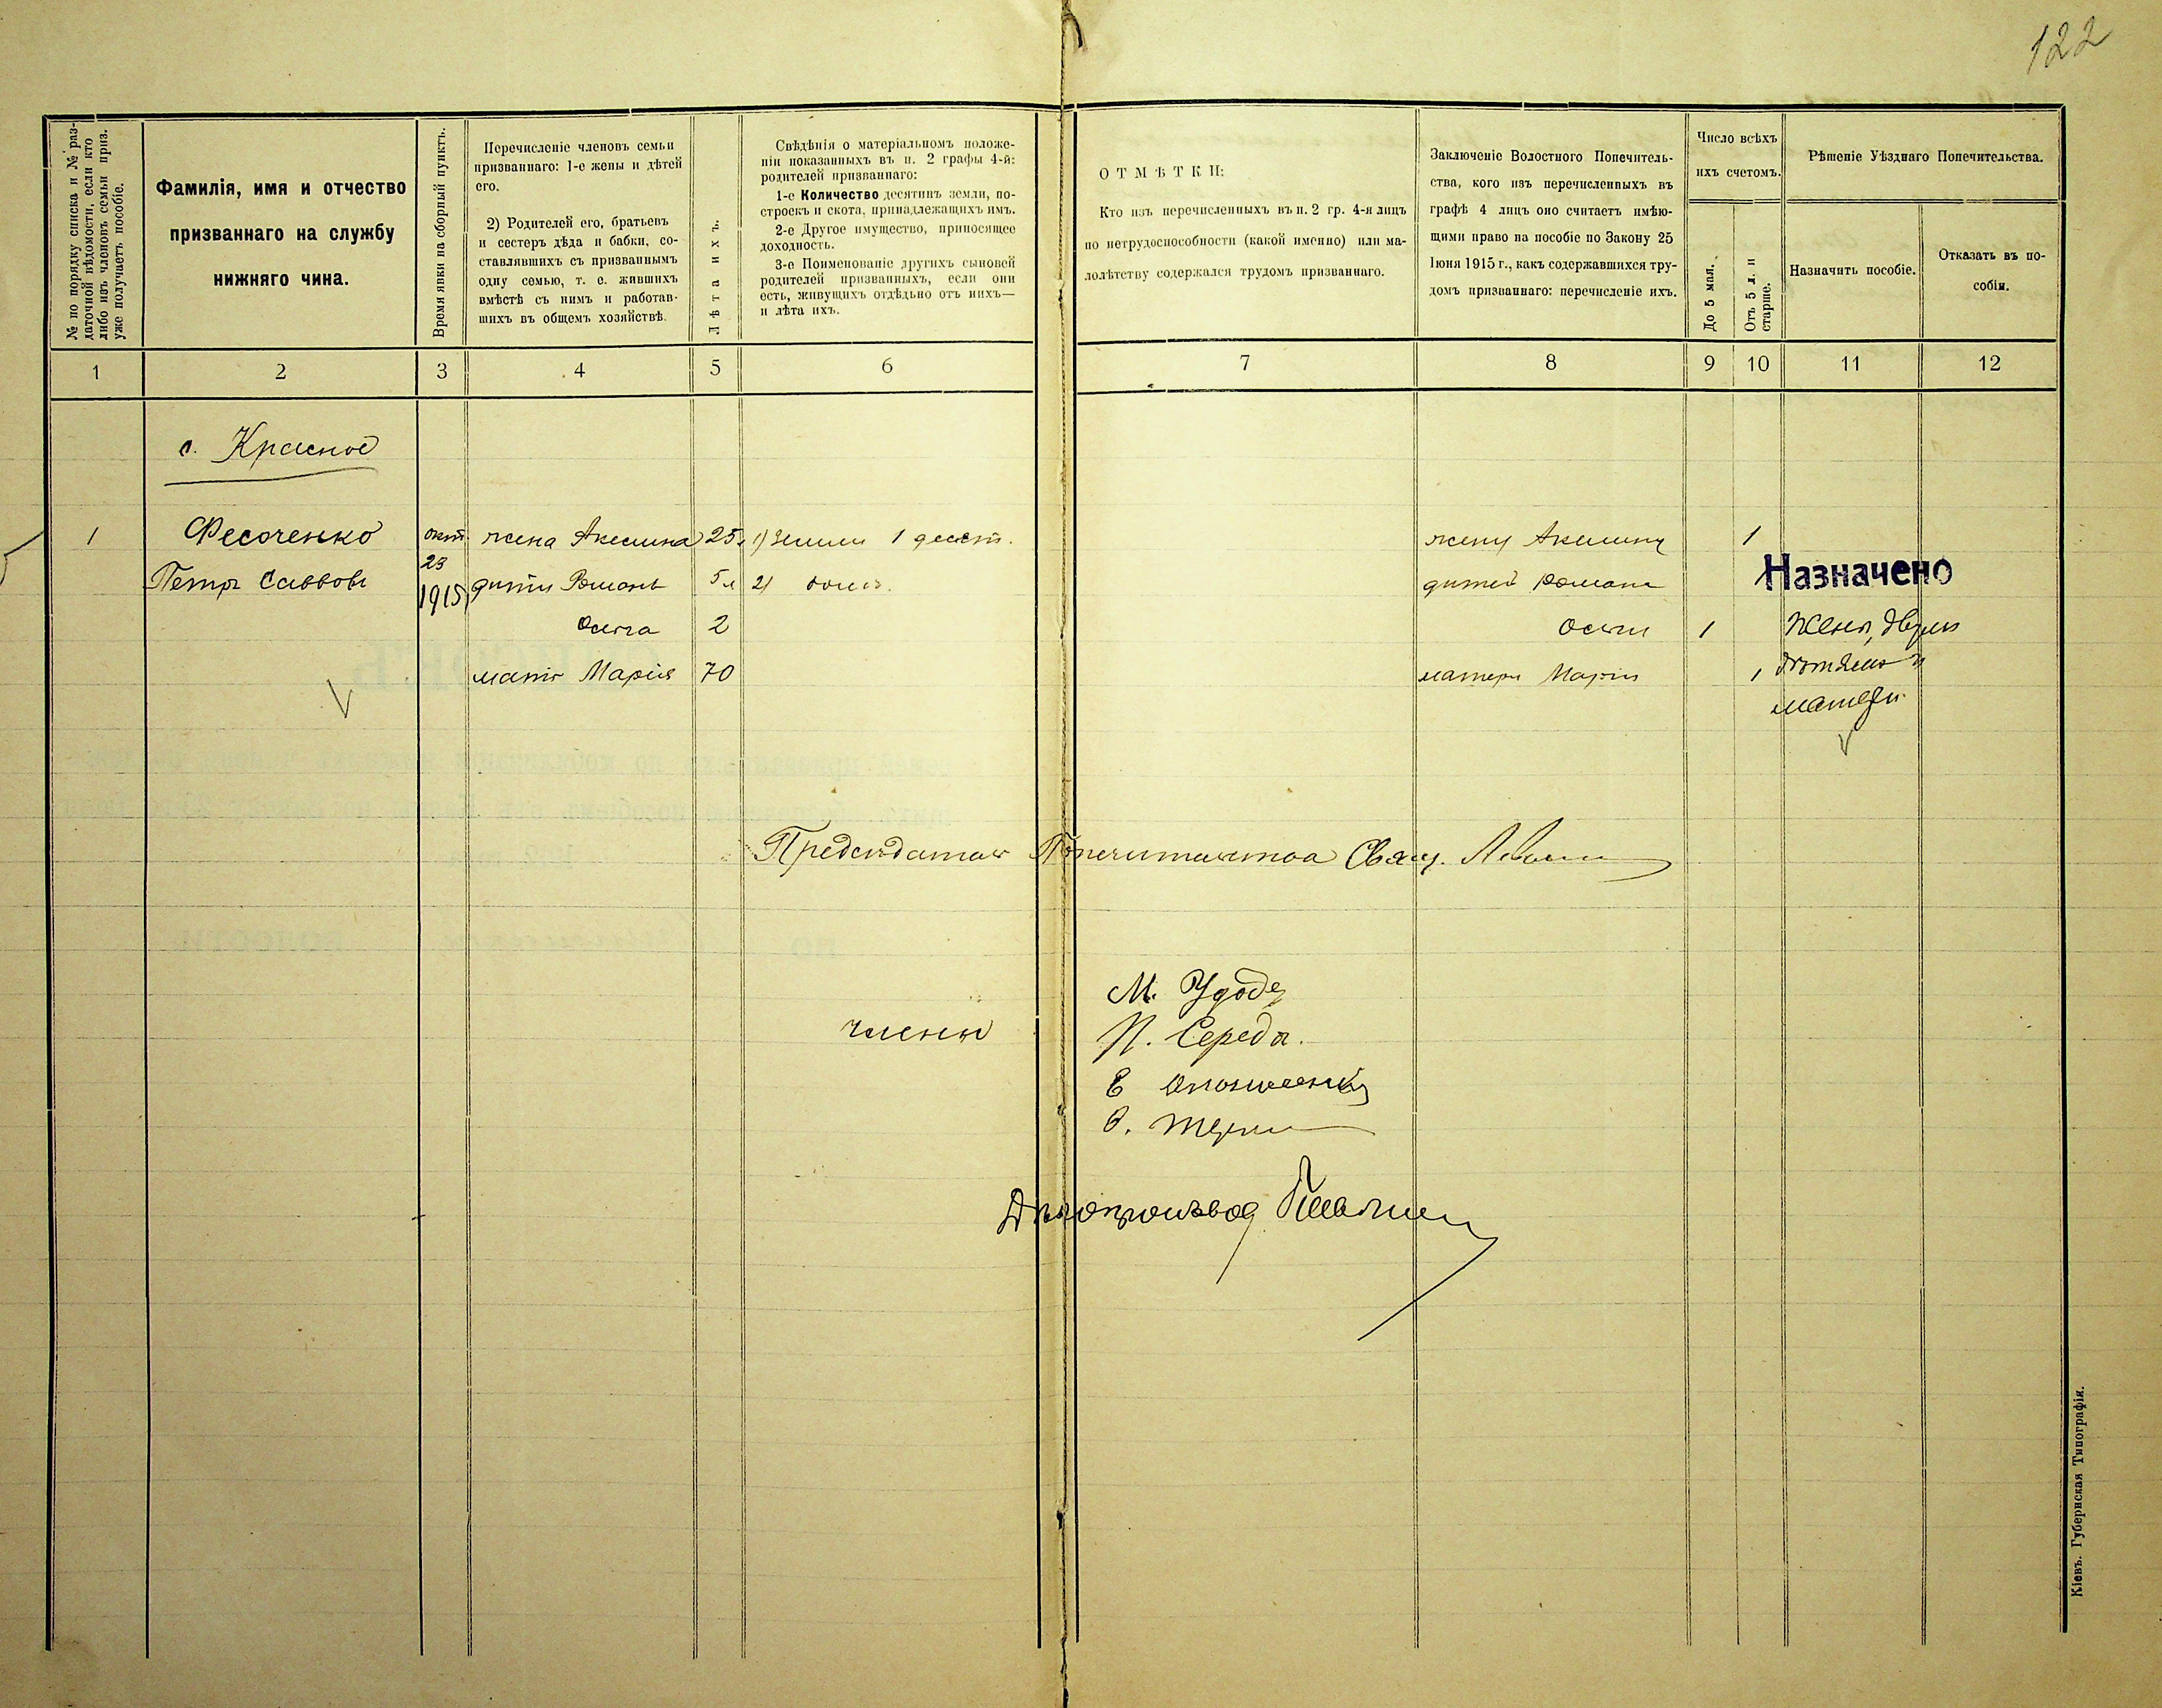 122
№ по порядку списка и № раз-
даточной вѣдомости, если кто
либо изъ членовъ семьи приз.
уже получаетъ пособіе.
Фамилія, имя и отчество
призваннаго на службу
нижняго чина.
Время явки на сборный пунктъ.
Перечисленіе членовъ семьи
призваннаго: 1-е жены и дѣтей
его.
2) Родителей его, братьевъ
и сестеръ дѣда и бабки, со-
ставлявшихъ съ призваннымъ
одну семью, т. е. жившихъ
вмѣстѣ съ нимъ и работав-
шихъ въ общемъ хозяйствѣ.
Лѣта ихъ.
Свѣдѣнія о матеріальномъ положе-
ніи показанныхъ въ п. 2 графы 4-й:
родителей призваннаго:
1-е Количество десятинъ земли, по-
строекъ и скота, принадлежащихъ имъ.
2-е Другое имущество, приносящее
доходность.
3-е Поименованіе другихъ сыновей
родителей призванныхъ, если они
есть, живущихъ отдѣльно отъ нихъ—
и лѣта ихъ.
ОТМѢТКИ:
Кто изъ перечисленныхъ въ п. 2 гр. 4-я лицъ
по нетрудоспособности (какой именно) или ма-
лолѣтству содержался трудомъ призваннаго.
Заключеніе Волостного Попечитель-
ства, кого изъ перечисленныхъ въ
графѣ 4 лицъ оно считаетъ имѣю-
щими право на пособіе по Закону 25
Іюня 1915 г., какъ содержавшихся тру-
домъ призваннаго: перечисленіе ихъ.
Число всѣхъ
ихъ счетомъ.
До 5 мал.
Отъ 5 л. и
старше.
Рѣшеніе Уѣзднаго Попечительства.
Назначить пособіе.
Отказать въ по-
собіи.
1 2 3 4 5 6 7 8 9 10 11 12
с. Красное
1 Фесоченко окт. жена Акелина 25 1) Земли 1 десят. жену Акелину 1
Петръ Саввовъ 23 дѣти Романъ 5 л 2) домъ. дѣтей Романа Назначено
1915
Ольга 2 Ольги 1 Женѣ, двумъ
мать Марія 70 матери Маріи 1 дѣтямъ и
матери
Предсѣдатель Попечительства Свящ.
М. Удод
члены П. Середа.
Е
О.
Дѣлопроизвод
Кіевъ. Губернская Типографія.